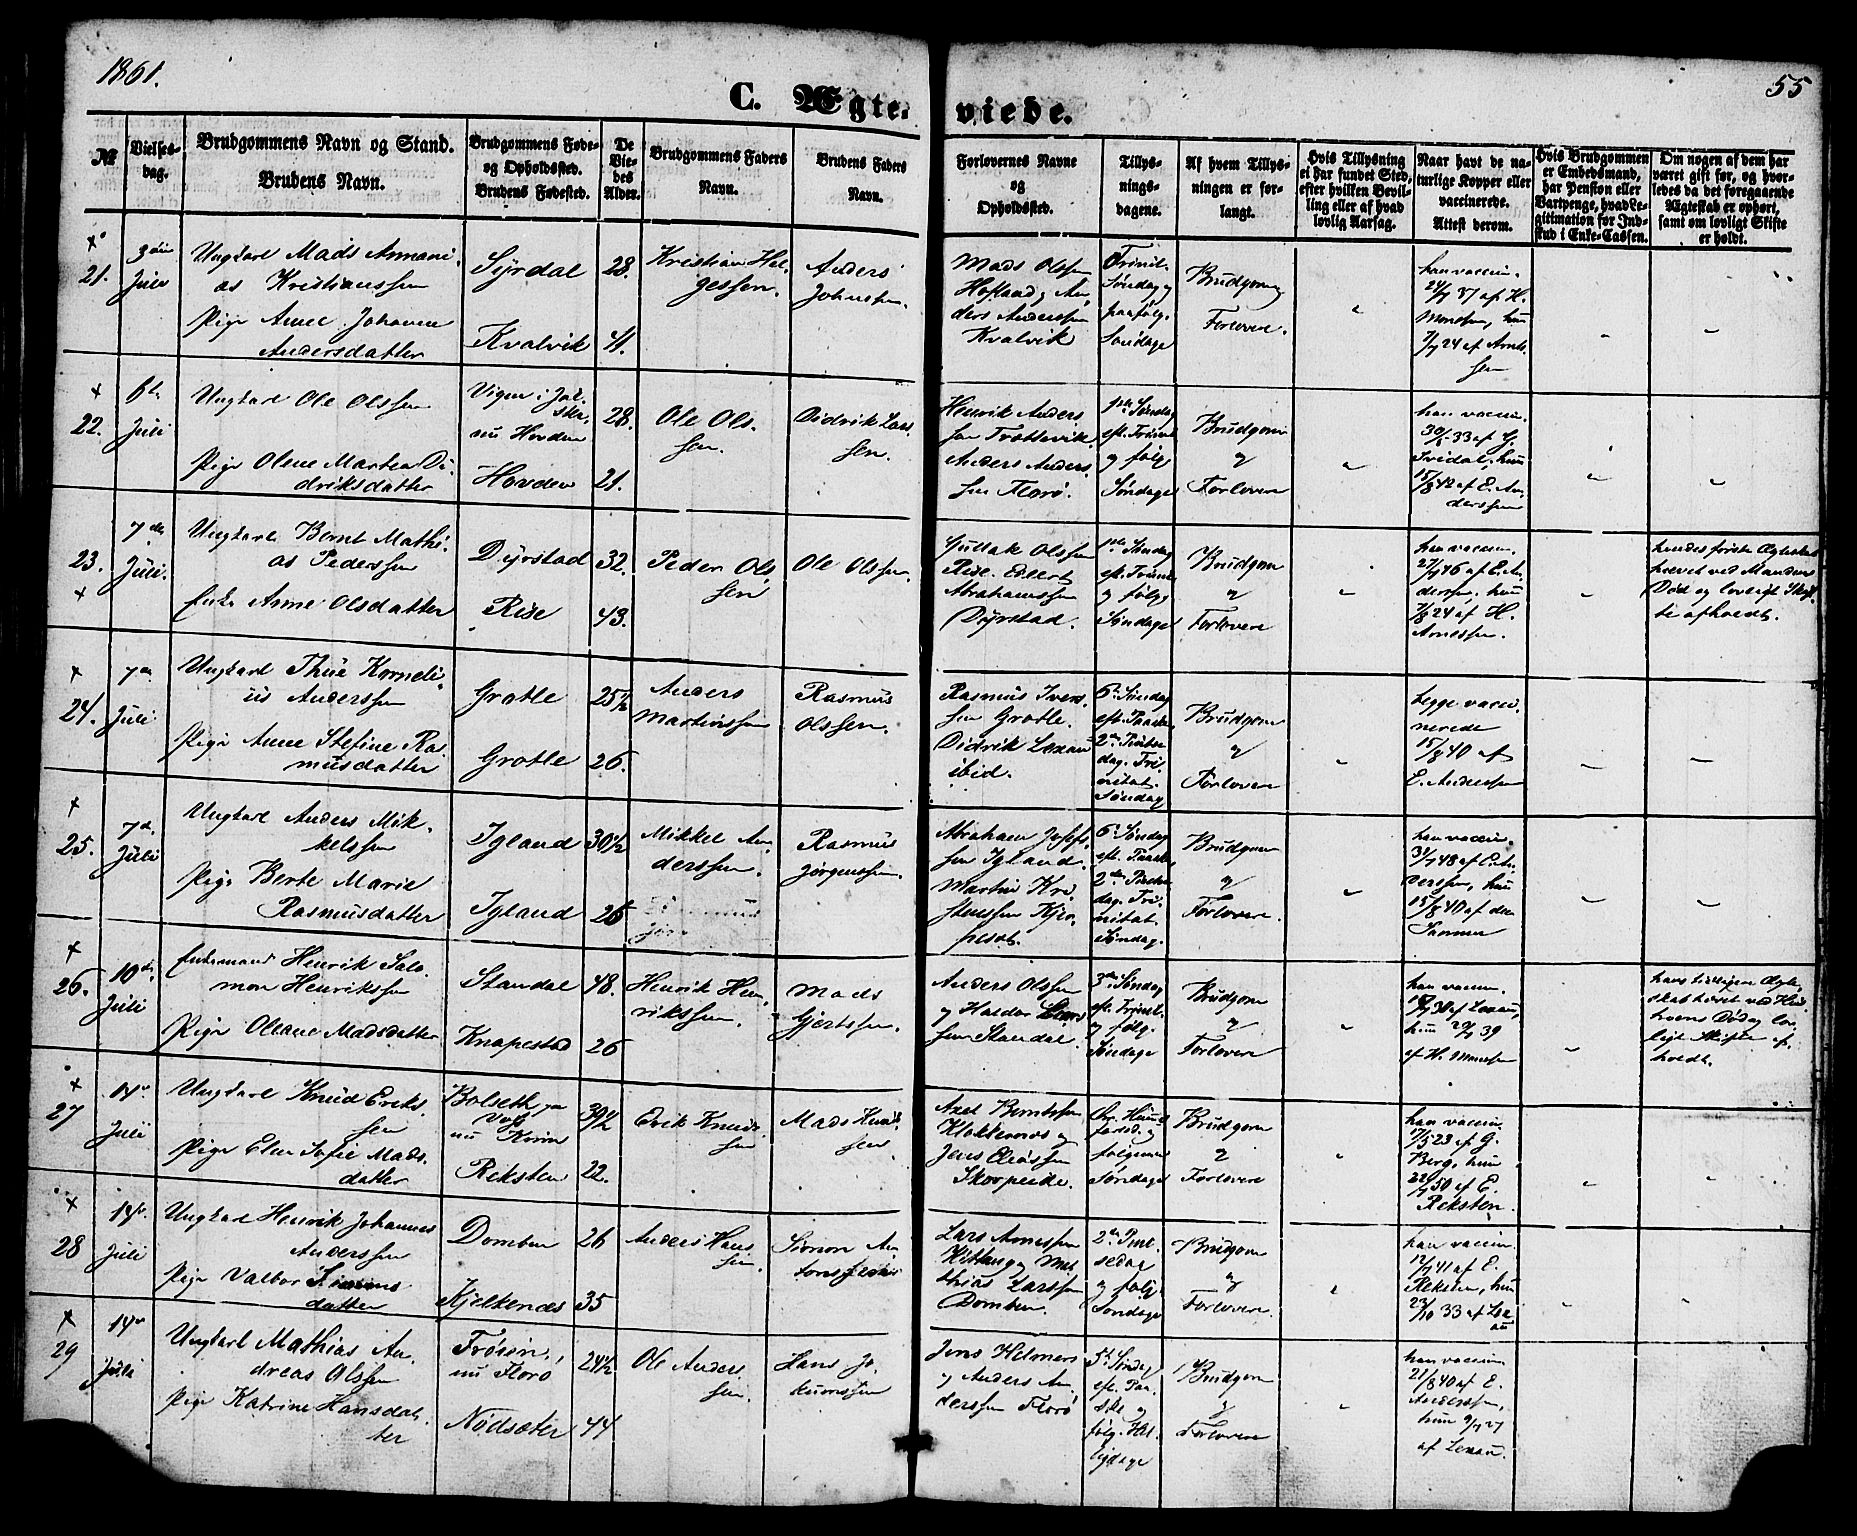 1861.
55
C. Ægte-
viede.
No
Vielses-
dag.
Brudgommens Navn og Stand.
Brudens Navn.
Brudgommens Føde-
og Opholdssted.
Brudens Fødested.
De
Vie-
des
Alder.
Brudgommens Faders
Navn.
Brudens Faders
Navn.
Forlovernes Navne
og
Opholdssted.
Tillys-
nings-
dagene.
Af hvem Tillys-
ningen er for-
langt.
Hvis Tillysning
ei har fundet Sted,
efter hvilken Bevil-
ling eller af hvad
lovlig Aarsag.
Naar havt de na-
turlige Kopper eller
vaccinerede.
Attest derom.
Hvis Brudgommen
er Embedsmand,
har Pension eller
Vartpenge, hvad Le-
gitimation for Ind-
skud i Enke-Cassen.
Om nogen af dem har
været gift før, og hvor-
ledes da det foregaaende
Ægteskab er ophørt,
samt om lovligt Skifte
er holdt.
21.
Juli
Ungkarl Mads Annani-
as Kristianssen
Pige Anne Johanne
Andersdatter
Syrdal
Kvalvik
28.
41.
Kristian Hel-
gessen.
Anders
Johnssen.
Mads Olssen
Hofland og An-
ders Anderssen
Kvalvik
Trinit.
Søndag og
paafølg.
Søndage
Brudgom og
Forlovere.
han vaccin.
24/7 37 af H.
Monssen, hun
7/7 24 af Arnt-
sen
22.
6te
Juli
Ungkarl Ole Olssen
Pige Olene Martea Di-
driksdatter
nu Hovden
Hovden
28.
21.
Ole Ols-
sen.
Didrik Lars-
sen.
Henrik Anders-
sen Trættevik
Anders Anders-
sen Florø.
1ste Søndag
eft. Trinit.
og følg.
Søndage
Brudgom
og
Forlovere
han vaccin.
hun
15/8 42 af E. An-
derssen
23.
7de
Juli.
Ungkarl Bernt Mathi-
as Pederssen
Enke Anne Olsdatter
Dyrstad
Rise
32.
43.
Peder Ols-
sen
Ole Olssen.
Guttak Olssen
Rise. Edlert
Abrahamssen
Dyrstad.
1ste Søndag
eft. Trinit.
og følg.
Søndage
Brudgom
og
Forlovere
han vaccin.
27/7 46 af E. An-
derssen, hun
7/8 24 af H.
Arnessen.
hendes første Ægteskab
hævet ved Mandens
Død og lovligt Skif-
te afholdt.
24.
7de
Juli
Ungkarl Thue Korneli-
us Anderssen
Pige Anne Stefine Ras-
musdatter
Grotle
Grotle
25 1/2
26.
Anders
Martinssen
Rasmus
Olssen.
Rasmus Ivers-
sen Grotle.
Didrik Lexau
ibid.
6te Søndag
eft. Paaske,
2den Pintse-
dag. Tri-
nitat.
Søndag
Brudgom
og
Forlovere
begge vacci-
nerede
15/8 40 af
E. Anderssen
25.
7de
Juli
Ungkarl Anders Mik-
kelssen
Pige Berte Marie
Rasmusdatter
Igland
Igland
30 1/2
26
Mikkel An-
derssen.
Rasmus
Jørgenssen.
Abraham Josefs-
sen Igland.
Martin Kri-
stenssen
6te Søndag
eft. Paaske,
2den Pintse-
dag. Tri-
nitat.
Søndag.
Brudgom
og
Forlovere.
han vaccin.
31/7 48 af E. An-
derssen, hun
15/8 40 af den
Samme
26.
10de
Juli
Enkemand Henrik Salo-
mon Henrikssen
Pige Oleane Madsdatter
Standal
Knapestad
48.
26
Henrik Hen-
rikssen.
Mads
Gjertssen.
Anders Olssen
og Haldor
sen Standal.
3die Søndag
eft. Trinit.
og følg.
Søndage
Brudgom
og
Forlovere
han vaccin.
af Lexau,
hun 29/7 39
af H. Monssen
hans tidligere Ægte-
skab hævet ved Hu-
struens Død og lov-
ligt Skifte af-
holdt.
27
14de
Juli
Ungkarl Knud Eriks-
sen
Pige Elen Sofie Mads-
datter
Bolseth paa
Voss
nu Kinn
Reksten
39 1/2
22.
Erik Knuds-
sen
Mads Knuds-
sen
Axel Berntssen
Klokkernes og
Jens Eliassen
Skorpeide.
følgende
Søndage
Brudgom
og
Forlovere
han vaccin.
17/5 23 af G.
Berg, hun
22/7 50 af E.
Reksten.
28
14de
Juli
Ungkarl Henrik Johannes
Anderssen
Pige Valbor Simons-
datter
Domben
Kjelkenes
26
35
Anders Hans-
sen.
Simon An-
tonssen
Lars Arnessen
Hittang og Mat-
thias Larssen
Domben.
2den Pint-
sedag
og følg.
Søndage
Brudgom
og
Forlovere
han vaccin.
12/7 41 af E.
Reksten, hun
23/10 33 af Lex-
au
29
14de
Juli
Ungkarl Mathias An-
dreas Olssen
Pige Katrine Hansdat-
ter
nu Florø
Nødsæter
24 1/2
44
Ole Anders-
sen.
Hans Jo-
kumssen
Jens Helmers
og Anders An-
derssen Florø
5te Søndag
eft. Paa-
ske og
følg. Hel-
ligdage
Brudgom
og
Forlovere
han vaccin.
21/8 40 af E.
Anderssen,
hun 9/7 27
af Lexau.